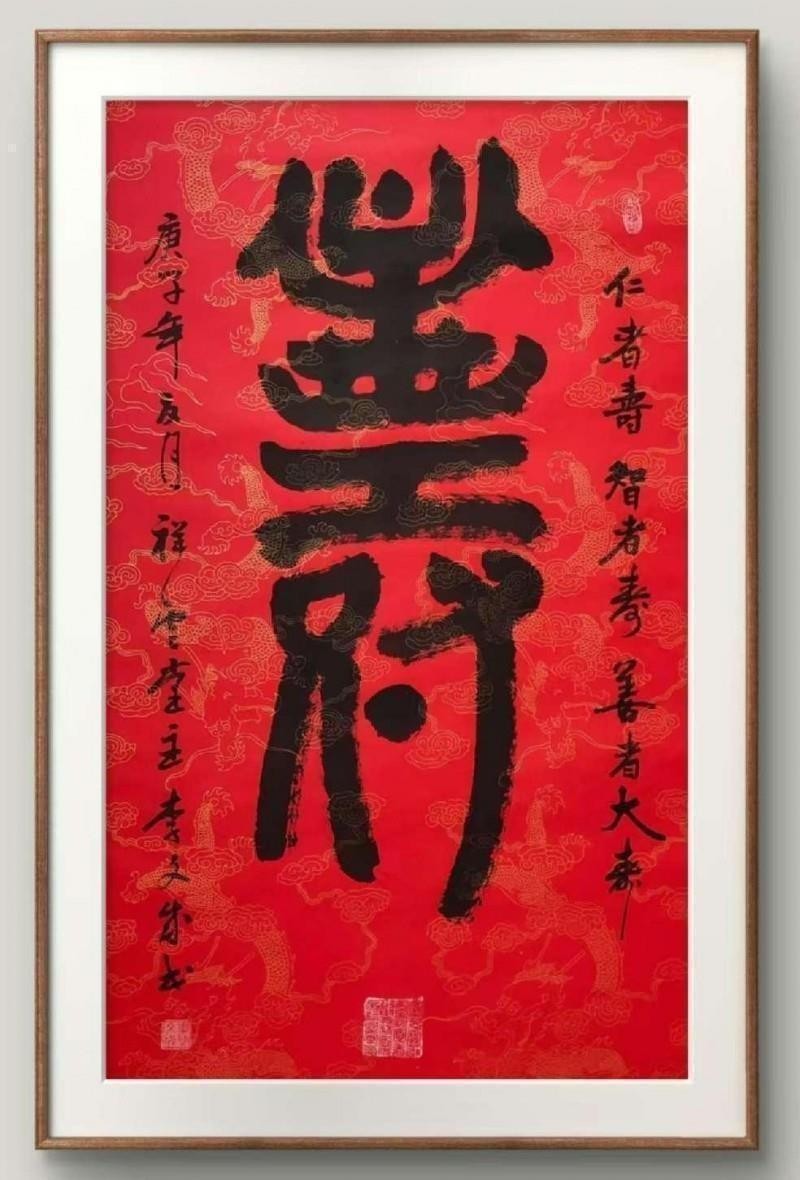 壽
仁者壽 智者寿 善者大寿
庚子年 夏月 祥雲堂主 李文成书